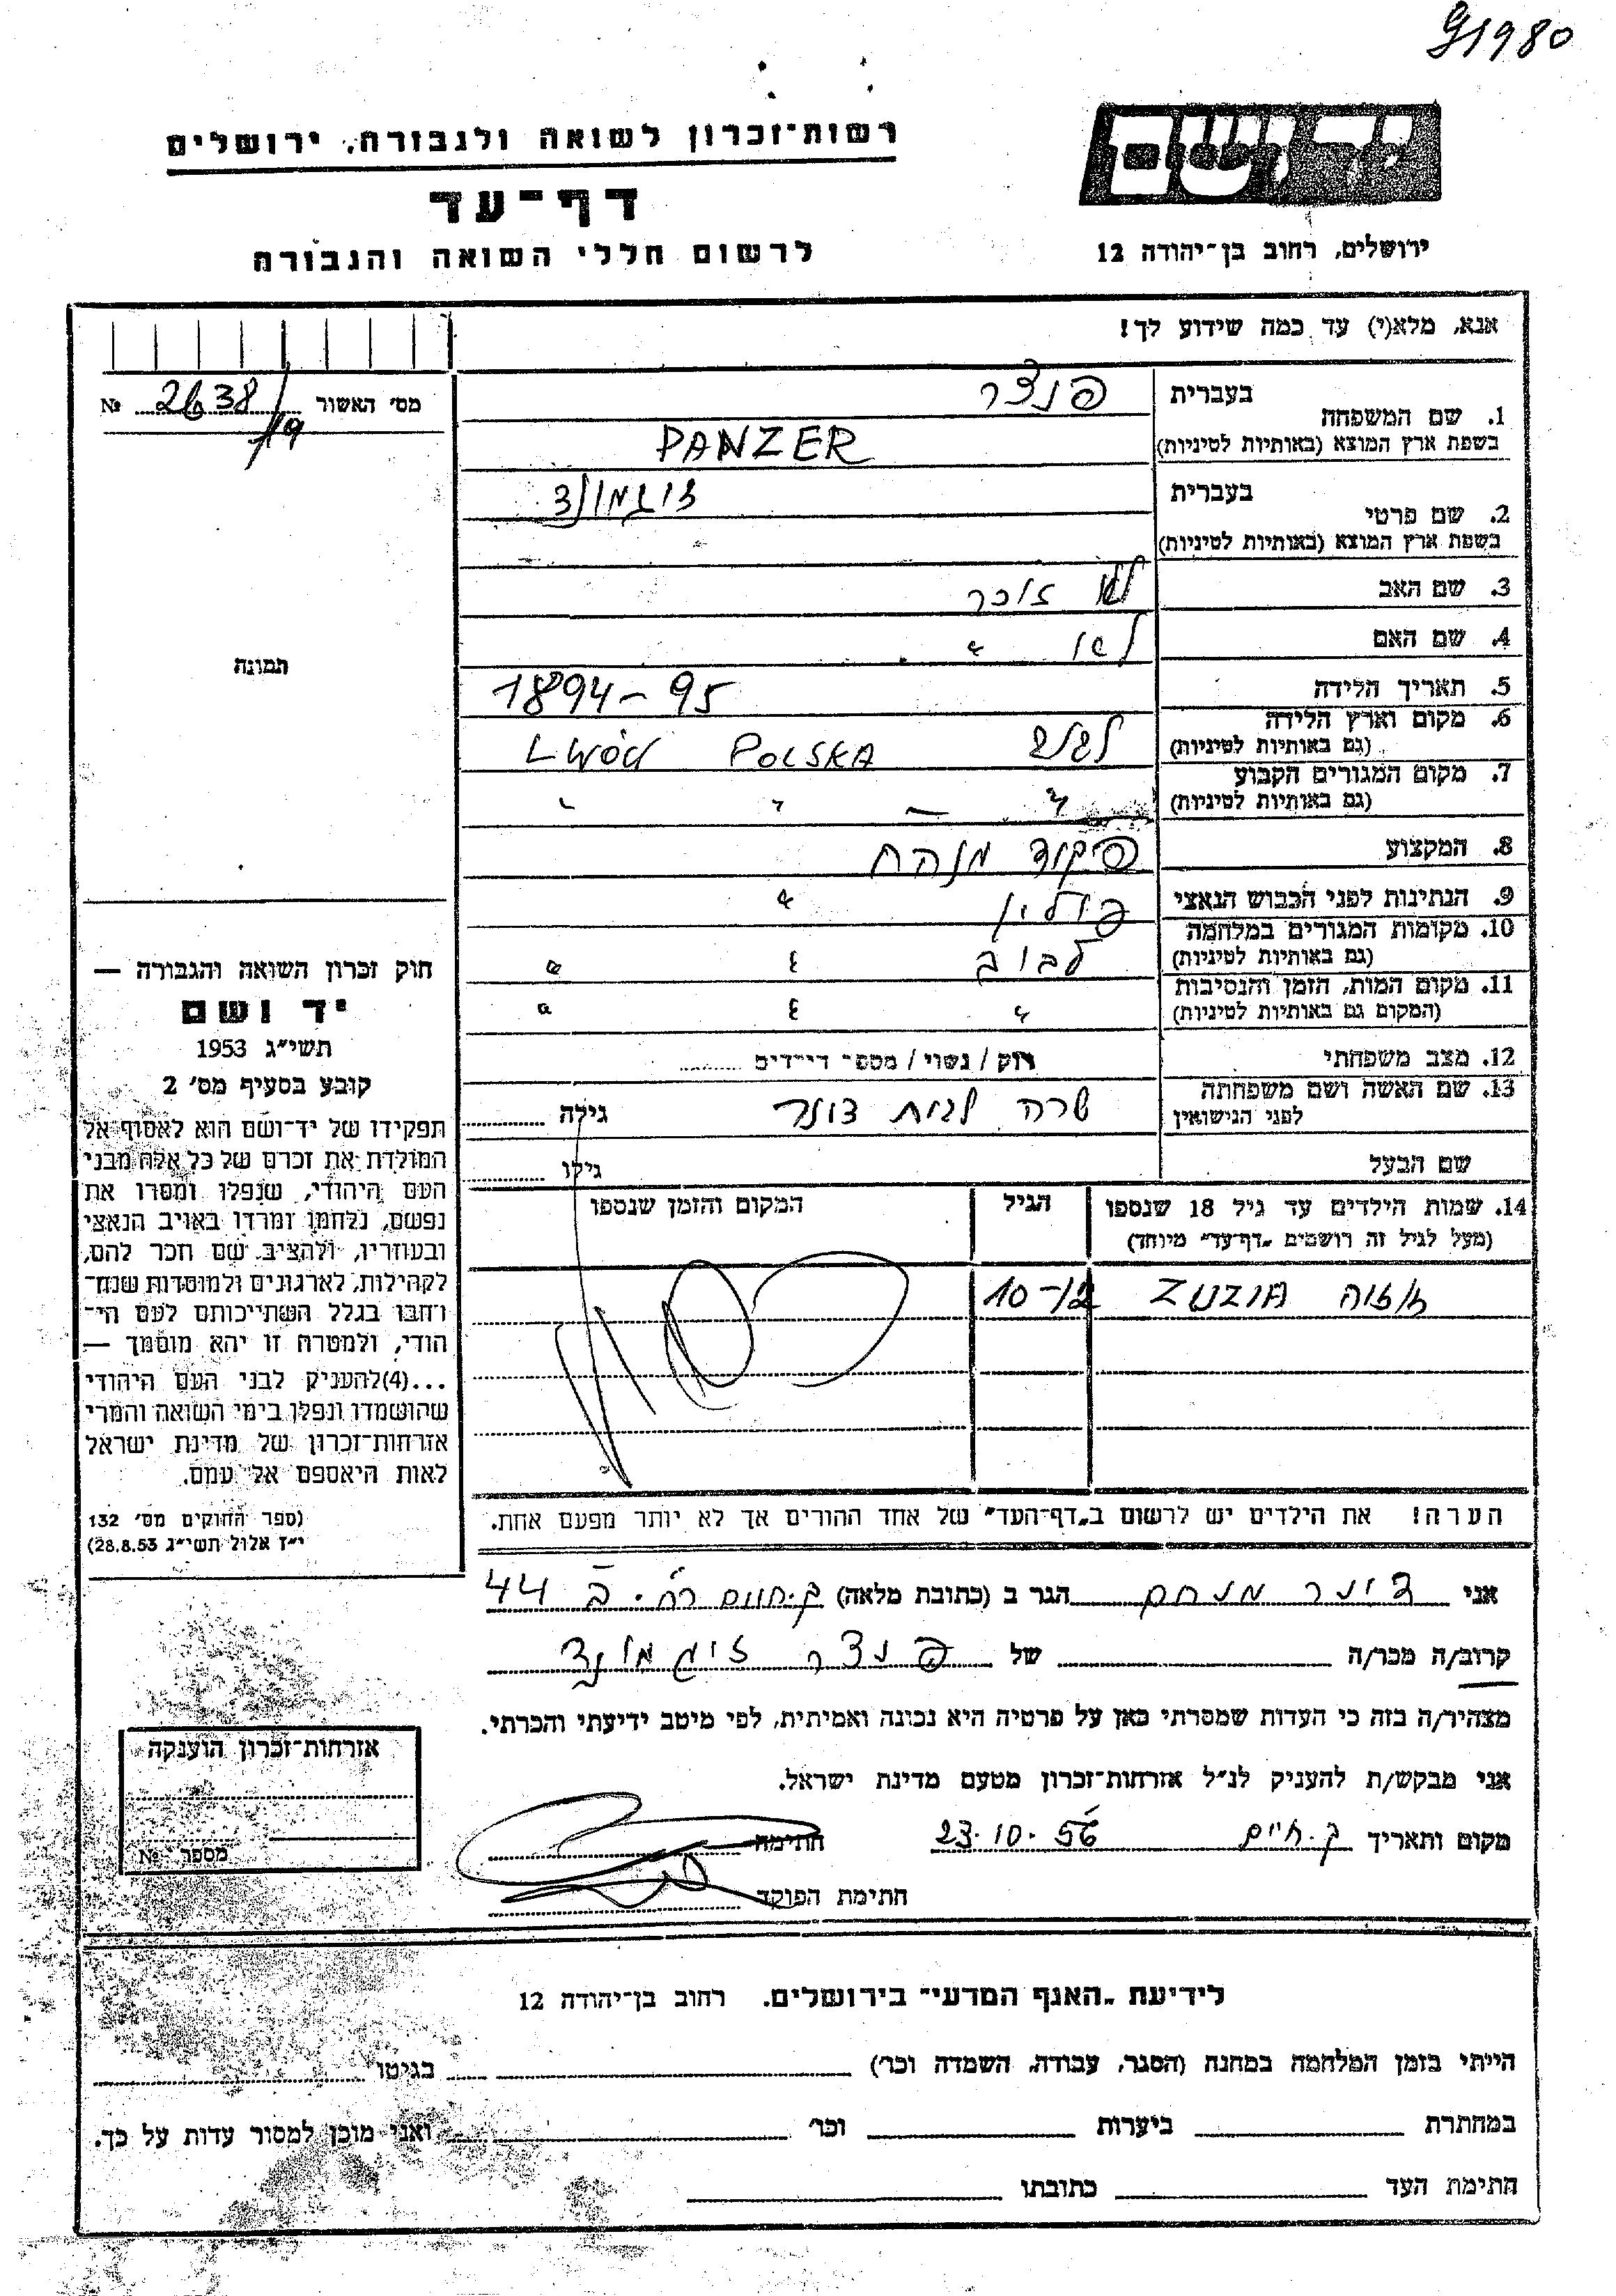 91980
רשות־זכרון לשואה ולגבורה, ירושלים
דף־עד
לרשום חללי השואה והגבורה
יד ושם
ירושלים, רחוב בן־יהודה 12
אנא, מלא(י) עד כמה שידוע לך!
מס׳ האשור № 2638/19
1. שם המשפחה בעברית פנצר
בשפת ארץ המוצא (באותיות לטיניות) PANZER
2. שם פרטי בעברית זיגמונד
בשפת ארץ המוצא (באותיות לטיניות)
3. שם האב לא זוכר
4. שם האם לא "
5. תאריך הלידה 1894-95
6. מקום וארץ הלידה (גם באותיות לטיניות) לבוב POLSKA LWÓW
7. מקום המגורים הקבוע (גם באותיות לטיניות) " — " "
8. המקצוע פיקוד
9. הנתינות לפני הכבוש הנאצי פולין "
10. מקומות המגורים במלחמה (גם באותיות לטיניות) לבוב " "
11. מקום המות, הזמן והנסיבות (המקום גם באותיות לטיניות) " " "
12. מצב משפחתי רוק / נשוי / מספר ילדים
13. שם האשה ושם משפחתה לפני הנישואין שרה לבית צונר גילה
שם הבעל גילו
14. שמות הילדים עד גיל 18 שנספו (מעל לגיל זה רושמים „דף־עד״ מיוחד) הגיל המקום והזמן שנספו
ZUZIA 10-12
הערה! את הילדים יש לרשום ב„דף־העד״ של אחד ההורים אך לא יותר מפעם אחת.
תמונה
חוק זכרון השואה והגבורה —
יד ושם
תשי״ג 1953
קובע בסעיף מס׳ 2
תפקידו של יד־ושם הוא לאסוף אל
המולדת את זכרם של כל אלה מבני
העם היהודי, שנפלו ומסרו את
נפשם, נלחמו ומרדו באויב הנאצי
ובעוזריו, ולהציב שם וזכר להם,
לקהילות, לארגונים ולמוסדות שנח־
רחבו בגלל השתייכותם לעם הי־
הודי, ולמטרה זו יהא מוסמך —
...(4) להעניק לבני העם היהודי
שהושמדו ונפלו בימי השואה והמרי
אזרחות־זכרון של מדינת ישראל
לאות היאספם אל עמם.
(ספר החוקים מס׳ 132
י״ז אלול תשי״ג 28.8.53)
אני צונר מנחם הגר ב (כתובת מלאה) ק. חיים 44
קרוב/ה מכר/ה של פנצר זיגמונד
מצהיר/ה בזה כי העדות שמסרתי כאן על פרטיה היא נכונה ואמיתית, לפי מיטב ידיעתי והכרתי.
אני מבקש/ת להעניק לנ״ל אזרחות־זכרון מטעם מדינת ישראל.
מקום ותאריך ק. חיים 23.10.56 חתימה
חתימת הפוקד
אזרחות־זכרון הוענקה
מספר №
לידיעת „האגף המדעי״ בירושלים. רחוב בן־יהודה 12
הייתי בזמן המלחמה במחנה (הסגר, עבודה, השמדה וכו׳) בגיטו
במחתרת ביערות וכו׳ ואני מוכן למסור עדות על כך.
חתימת העד כתובתו